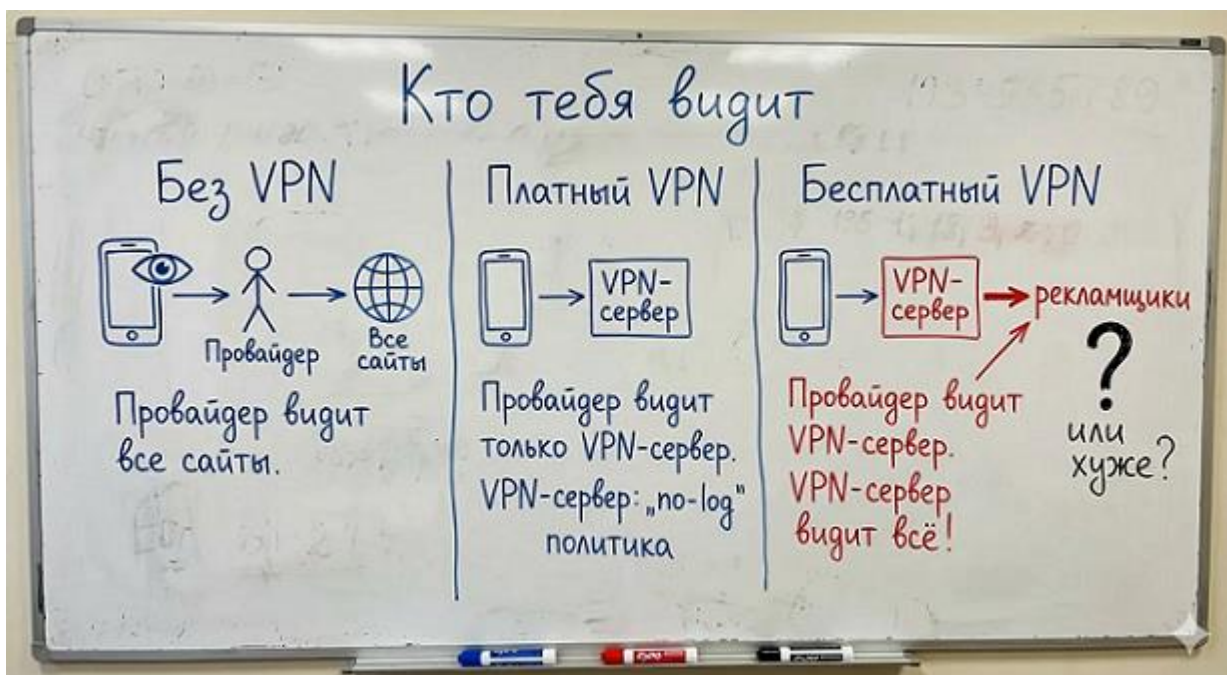 Кто тебя видит
Без VPN
Провайдер
Все
сайты
Провайдер видит
все сайты.
Платный VPN
VPN-
сервер
Провайдер видит
только VPN-сервер.
VPN-сервер: „no-log"
политика
Бесплатный VPN
VPN-
сервер
рекламщики
?
или
хуже?
Провайдер видит
VPN-сервер.
VPN-сервер
видит всё!